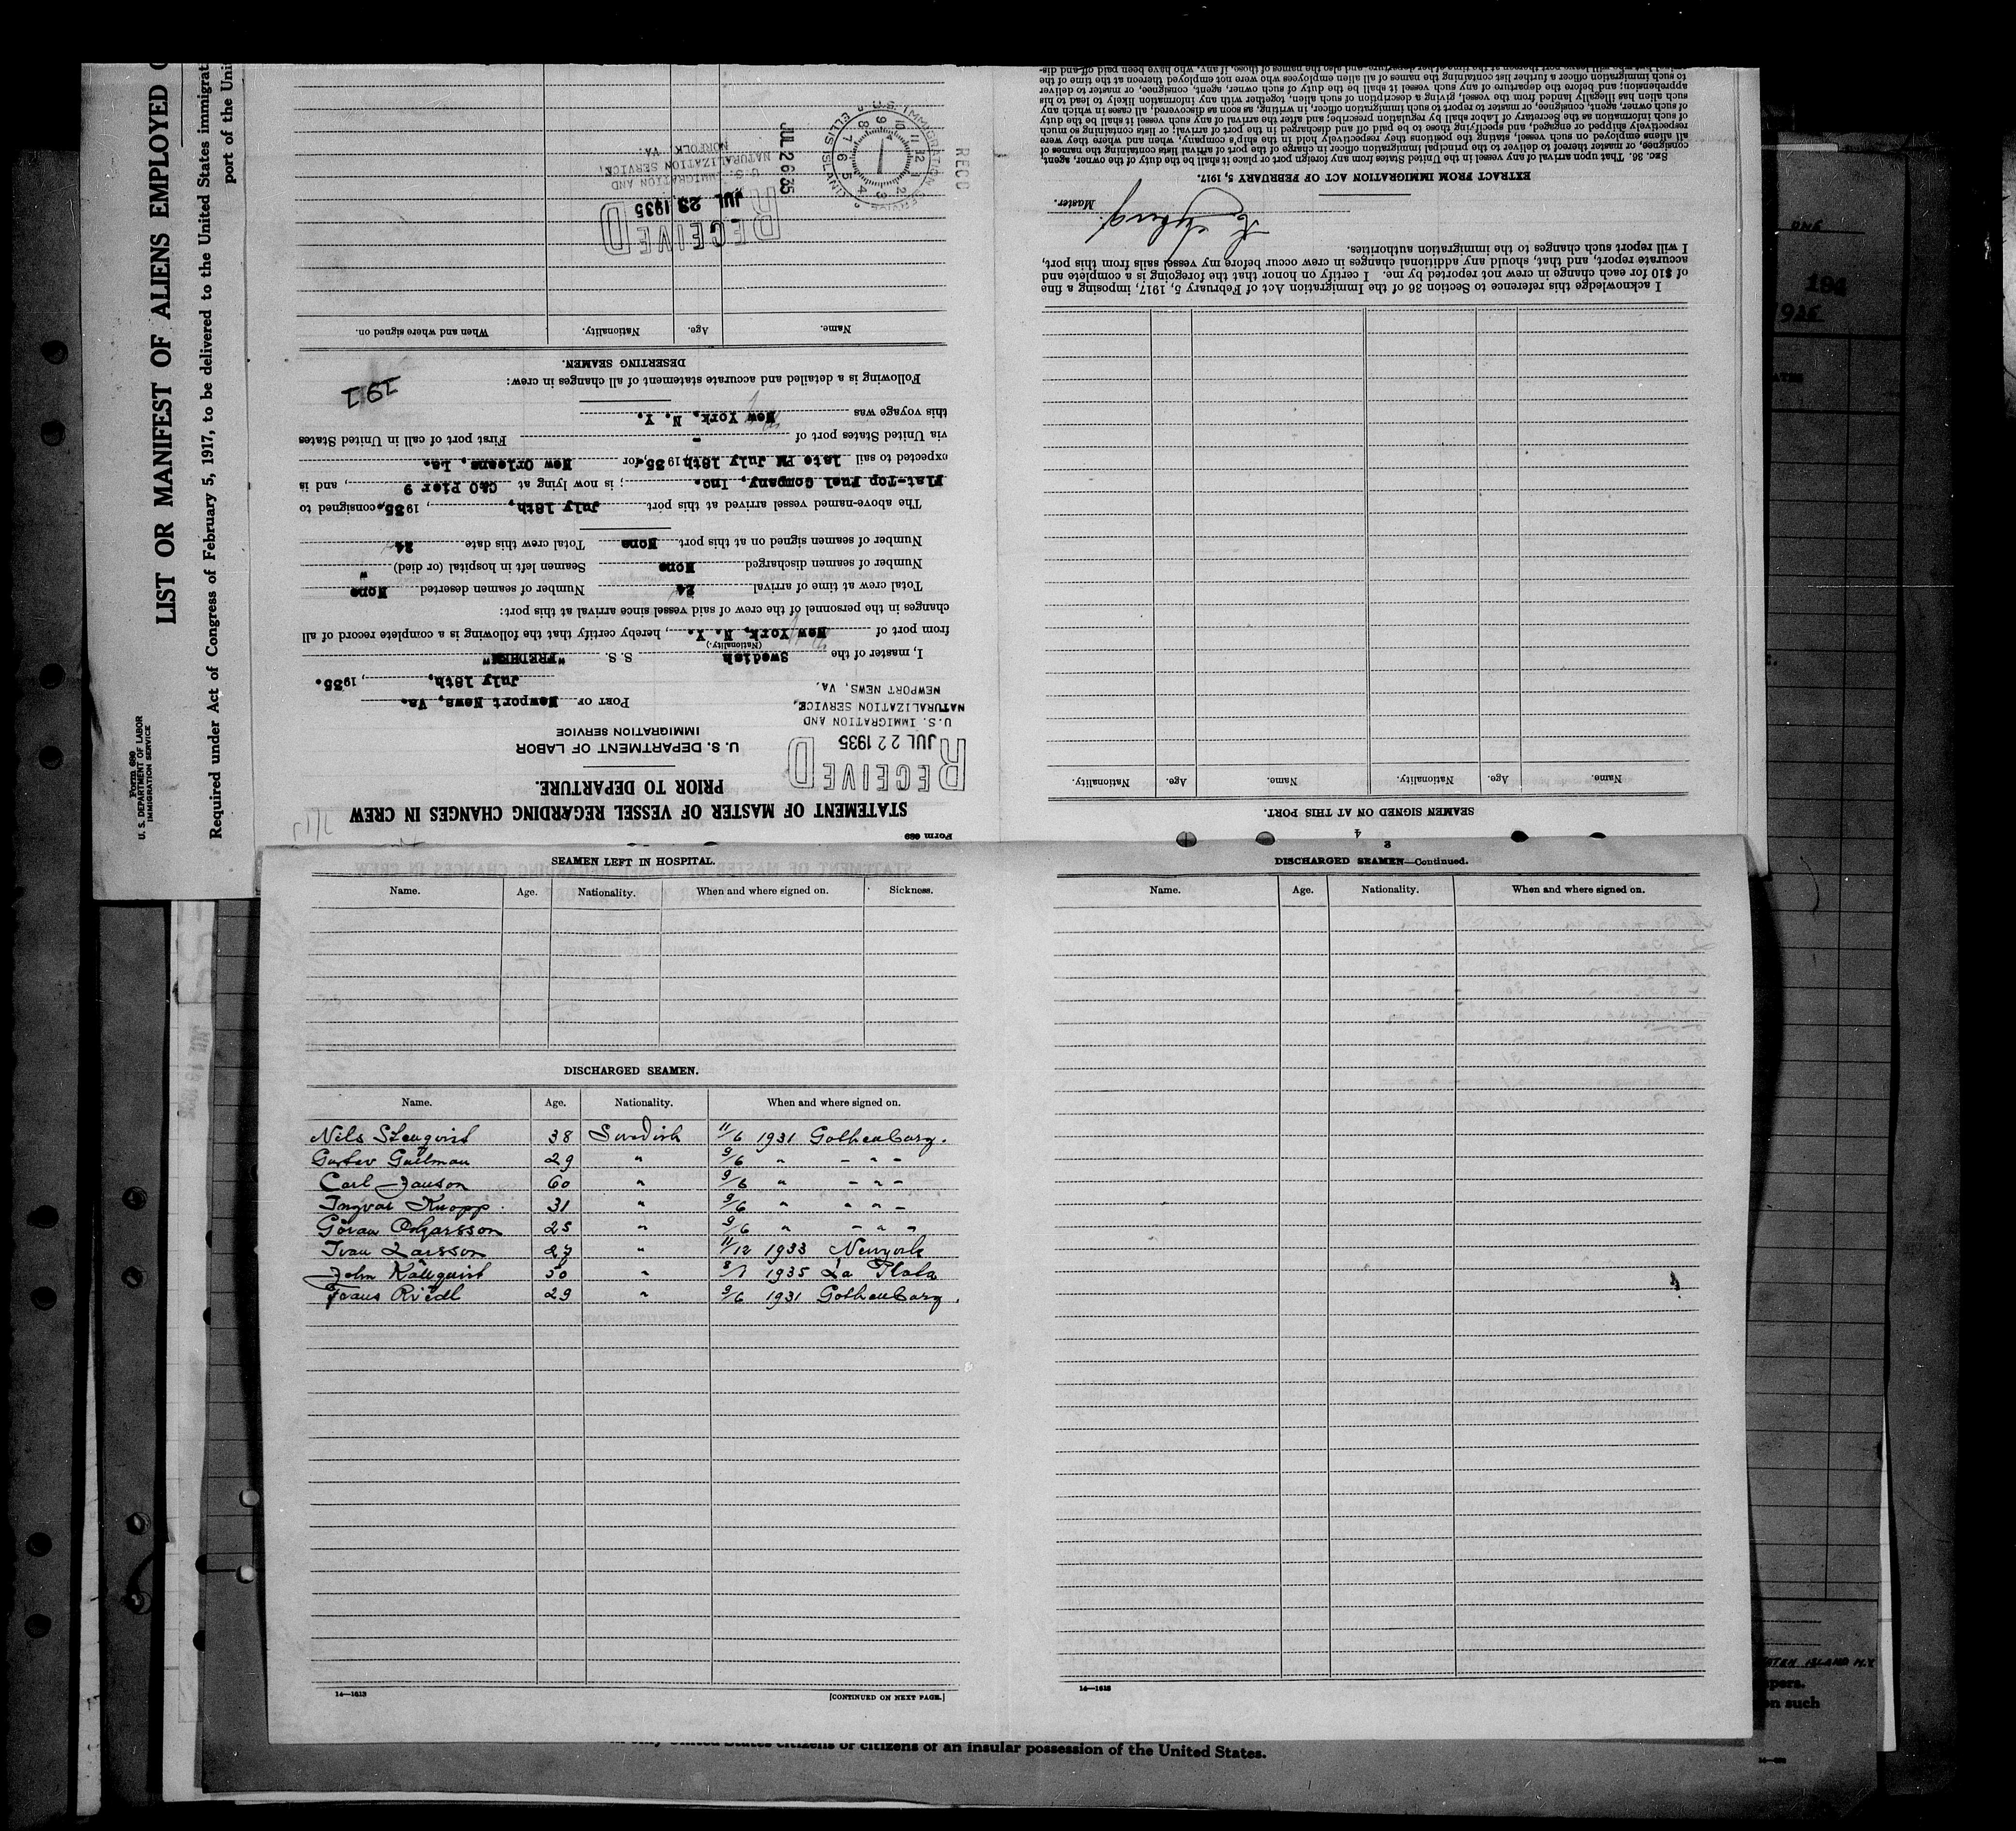 LIST OR MANIFEST OF ALIENS EMPLOYED
Required under Act of Congress of February 5, 1917, to be delivered to the United States immigrat
port of the Uni
Form 680
U. S. DEPARTMENT OF LABOR
IMMIGRATION SERVICE
Form 689
STATEMENT OF MASTER OF VESSEL REGARDING CHANGES IN CREW
PRIOR TO DEPARTURE.
U. S. DEPARTMENT OF LABOR
IMMIGRATION SERVICE
RECEIVED
JUL 22 1935
U.S. IMMIGRATION AND
NATURALIZATION SERVICE,
NEWPORT NEWS, VA.
PORT OF Newport News, Va.
July 18th, , 1935.
I, master of the Swedish S. S. "FREDHEM"
(Nationality.)
from port of New York, N. Y. , hereby certify that the following is a complete record of all
changes in the personnel of the crew of said vessel since arrival at this port:
Total crew at time of arrival 24 Number of seamen deserted None
Number of seamen discharged None Seamen left in hospital (or died) "
Number of seamen signed on at this port None Total crew this date 24
The above-named vessel arrived at this port July 18th, , 1935, consigned to
Flat-Top Fuel Company, Inc. ; is now lying at C&O Pier 9 , and is
expected to sail late PM July 18th, 1935, for New Orleans, La.
via United States port of - First port of call in United States
this voyage was New York, N. Y.
Following is a detailed and accurate statement of all changes in crew:
191
DESERTING SEAMEN.
Name. Age. Nationality. When and where signed on.
RECEIVED
JUL 23 1935
U. S. IMMIGRATION AND
NATURALIZATION SERVICE,
NORFOLK VA.
JUL 26 35
RECD
U.S. IMMIGRATION SERVICE
ELLIS ISLAND
12 1 2 3 4 5 6 7 8 9 10 11
4
SEAMEN SIGNED ON AT THIS PORT.
Name. Age. Nationality. Name. Age. Nationality.
I acknowledge this reference to Section 36 of the Immigration Act of February 5, 1917, imposing a fine
of $10 for each change in crew not reported by me. I certify on honor that the foregoing is a complete and
accurate report, and that, should any additional changes in crew occur before my vessel sails from this port,
I will report such changes to the immigration authorities.
Master.
EXTRACT FROM IMMIGRATION ACT OF FEBRUARY 5, 1917.
SEC. 36. That upon arrival of any vessel in the United States from any foreign port or place it shall be the duty of the owner, agent,
consignee, or master thereof to deliver to the principal immigration officer in charge of the port of arrival lists containing the names of
all aliens employed on such vessel, stating the positions they respectively hold in the ship's company, when and where they were
respectively shipped or engaged, and specifying those to be paid off and discharged in the port of arrival; or lists containing so much
of such information as the Secretary of Labor shall by regulation prescribe; and after the arrival of any such vessel it shall be the duty
of such owner, agent, consignee, or master to report to such immigration officer, in writing, as soon as discovered, all cases in which any
such alien has illegally landed from the vessel, giving a description of such alien, together with any information likely to lead to his
apprehension; and before the departure of any such vessel it shall be the duty of such owner, agent, consignee, or master to deliver
to such immigration officer a further list containing the names of all alien employees who were not employed thereon at the time of the
SEAMEN LEFT IN HOSPITAL.
Name. Age. Nationality. When and where signed on. Sickness.
DISCHARGED SEAMEN.
Name. Age. Nationality. When and where signed on.
Nils Stenqvist 38 Swedish 11/6 1931 Gothenburg.
Gustav 29 " 9/6 " - " -
Carl Janson 60 " 9/6 " - " -
Ingvar Knopp. 31 " 9/6 " " " -
Göran 25 " 9/6 " - " -
Ivan Larsson 27 " 11/12 1933 Newyork
John Källqvist 50 " 1935 La Plata
Frans Riedl 29 " 9/6 1931 Gothenburg.
14—1613
[CONTINUED ON NEXT PAGE.]
3
DISCHARGED SEAMEN—Continued.
Name. Age. Nationality. When and where signed on.
14—1613
ONE
194
pers.
on such
only United States citizens or citizens of an insular possession of the United States.